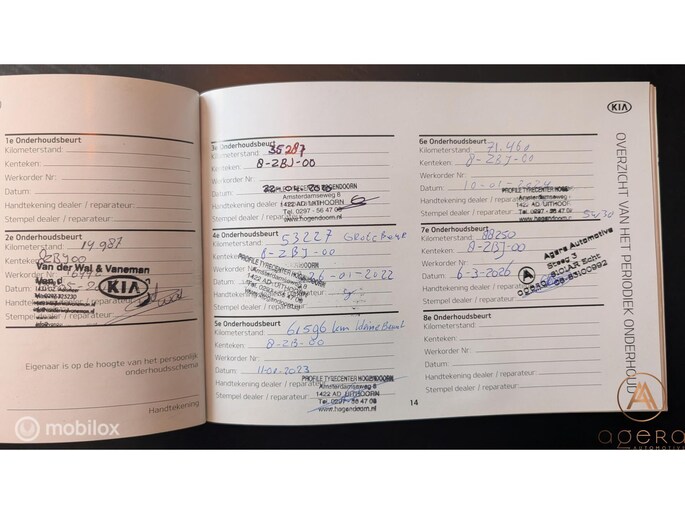 1e Onderhoudsbeurt
Kilometerstand:
Kenteken:
Werkorder Nr:
Datum:
Handtekening dealer / reparateur:
Stempel dealer / reparateur:
2e Onderhoudsbeurt
Kilometerstand: 19987
Kenteken: 8ZBJ00
Werkorder Nr:
Van der Wal & Vaneman
KIA
Eigenaar is op de hoogte van het persoonlijk
onderhoudsschema
Handtekening
3e Onderhoudsbeurt
Kilometerstand: 35287
Kenteken: 8-ZBJ-00
Werkorder Nr:
Datum:
Handtekening dealer / reparateur:
Stempel dealer / reparateur:
Amsterdamseweg 8
1422 AD UITHOORN
Tel. 0297 - 56 47 08
www.hogendoorn.nl
4e Onderhoudsbeurt
Kilometerstand: 53227 Grote beurt
Kenteken: 8-ZBJ-00
Werkorder Nr:
26-01-2022
PROFILE TYRECENTER HOGENDOORN
Amsterdamseweg 8
1422 AD UITHOORN
5e Onderhoudsbeurt
Kilometerstand: 61596 km kleine beurt
Kenteken: 8-ZBJ-00
Werkorder Nr:
Datum: 11-01-2023
Handtekening dealer / reparateur:
Stempel dealer / reparateur:
PROFILE TYRECENTER HOGENDOORN
Amsterdamseweg 8
1422 AD UITHOORN
Tel. 0297 - 56 47 08
www.hogendoorn.nl
14
6e Onderhoudsbeurt
Kilometerstand: 71.460
Kenteken: 8-ZBJ-00
Werkorder Nr:
Datum: 10-01-2024
Handtekening dealer / reparateur:
Stempel dealer / reparateur:
PROFILE TYRECENTER HOGENDOORN
Amsterdamseweg 8
1422 AD UITHOORN
Tel. 0297 - 56 47 08
www.hogendoorn.nl
5W30
7e Onderhoudsbeurt
Kilometerstand: 88250
Kenteken: 8-ZBJ-00
Werkorder Nr:
Datum: 6-3-2026
Handtekening dealer / reparateur:
Stempel dealer / reparateur:
Agera Automotive
6101AR Echt
8e Onderhoudsbeurt
Kilometerstand:
Kenteken:
Werkorder Nr:
Datum:
Handtekening dealer / reparateur:
Stempel dealer / reparateur:
KIA
OVERZICHT VAN HET PERIODIEK ONDERHOUD
mobilox
agera
AUTOMOTIVE